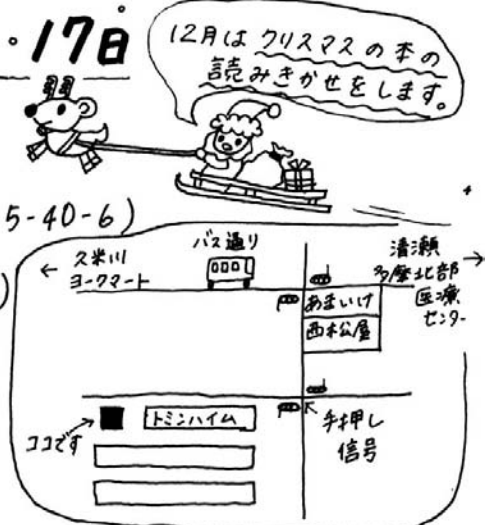 17日
12月はクリスマスの本の
読みきかせをします。
5-40-6)
)
バス通り
← 久米川
ヨークマート
清瀬 →
多摩北部
医療
センター
あまいけ
西松屋
トミンハイム
ココです
手押し
信号